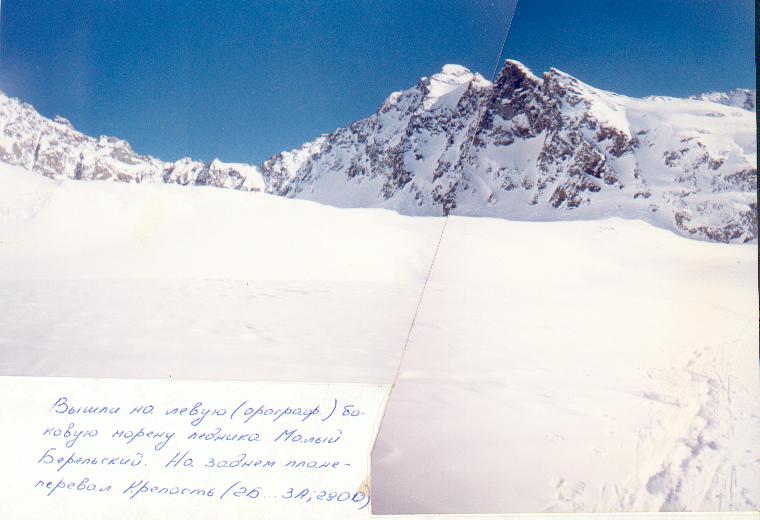 Вышли на левую (орограф.) бо-
ковую морену ледника Малый
Берельский. На заднем плане -
перевал Крепость (2Б...3А; 2900)